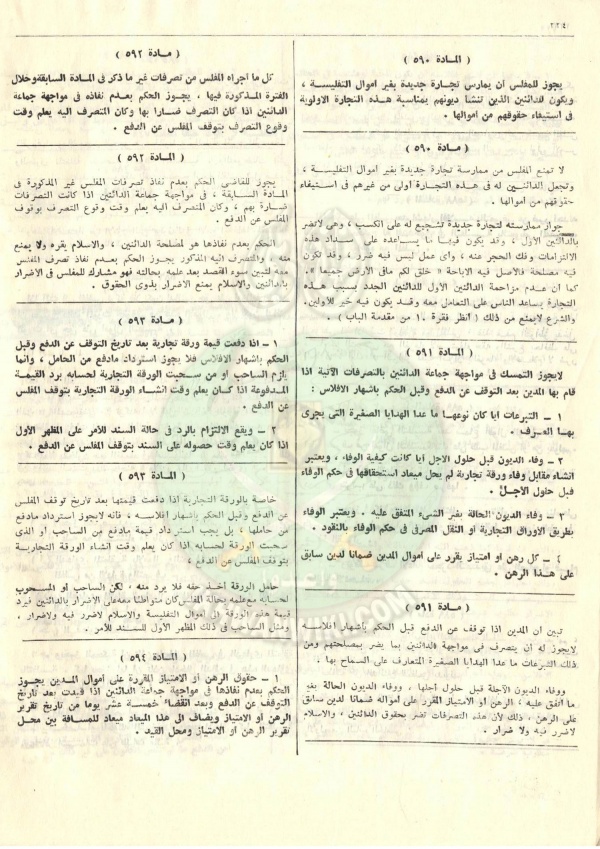 ٢٢٤
( المادة ٥٩٠ )
يجوز للمفلس أن يمارس تجارة جديدة بغير أموال التفليسة ،
ويكون للدائنين الذين تنشأ ديونهم بمناسبة هذه التجارة الاولوية
في استيفاء حقوقهم من أموالها .
( مادة ٥٩٠ )
لا تمنع المفلس من ممارسة تجارة جديدة بغير أموال التفليسة ،
وتجعل الدائنين له في هذه التجارة أولى من غيرهم في استيفاء
حقوقهم من أموالها .
جواز ممارسته لتجارة جديدة تشجيع له على الكسب ، وهى لاتضر
بالدائنين الأول ، وقد يكون فيها ما يساعده على سداد هذه
الالتزامات وفك الحجر عنه ، واى عمل ليس فيه ضرر ، وقد تكون
فيه مصلحة فالاصل فيه الاباحة « خلق لكم مافى الأرض جميعا » .
كما أن عدم مزاحمة الدائنين الأول للدائنين الجدد بسبب هذه
التجارة يساعد الناس على التعامل معه وقد يكون فيه خير للأولين.
والشرع لايمنع من ذلك ( أنظر فقرة ١٠ من مقدمة الباب ) .
( المادة ٥٩١ )
لايجوز التمسك فى مواجهة جماعة الدائنين بالتصرفات الآتية اذا
قام بها المدين بعد التوقف عن الدفع وقبل الحكم باشهار الافلاس :
١ – التبرعات أيا كان نوعها ما عدا الهدايا الصغيرة التى يجرى
بها العرف .
٢ – وفاء الديون قبل حلول الاجل أيا كانت كيفية الوفاء ، ويعتبر
انشاء مقابل وفاء ورقة تجارية لم يحل ميعاد استحقاقها فى حكم الوفاء
قبل حلول الأجل .
٣ – وفاء الديون الحالة بغير الشىء المتفق عليه . ويعتبر الوفاء
بطريق الاوراق التجارية أو النقل المصرفى فى حكم الوفاء بالنقود .
٤ – كل رهن أو امتياز يقرر على أموال المدين ضمانا لدين سابق
على هذا الرهن .
( مادة ٥٩١ )
تبين أن المدين اذا توقف عن الدفع قبل الحكم باشهار افلاسه
لايجوز له أن يتصرف فى مواجهة الدائنين بما يضر بمصلحتهم ومن
ذلك التبرعات ما عدا الهدايا الصغيرة المتعارف على السماح بها .
ووفاء الديون الآجلة قبل حلول أجلها ، ووفاء الديون الحالة بغير
ما اتفق عليه ، الرهن أو الامتياز المقرر على أمواله ضمانا لدين سابق
على الرهن ، ذلك لأن هذه التصرفات تضر بحقوق الدائنين ، والاسلام
لاضرر فيه ولا ضرار .
( مادة ٥٩٢ )
كل ما أجراه المفلس من تصرفات غير ما ذكر فى المادة السابقة وخلال
الفترة المذكورة فيها ، يجوز الحكم بعدم نفاذه فى مواجهة جماعة
الدائنين اذا كان التصرف ضارا بها وكان المتصرف اليه يعلم وقت
وقوع التصرف بتوقف المفلس عن الدفع .
( المادة ٥٩٢ )
يجوز للقاضى الحكم بعدم نفاذ تصرفات المفلس غير المذكورة فى
المادة السابقة ، فى مواجهة جماعة الدائنين اذا كانت التصرفات
ضارة بهم ، وكان المتصرف اليه يعلم وقت وقوع التصرف بوقوف
المفلس عن الدفع .
الحكم بعدم نفاذها هو لمصلحة الدائنين ، والاسلام يقره ولا يمنع
منه ، والمتصرف اليه المذكور يجوز الحكم بعدم نفاذ تصرف المفلس
معه لتبين سوء القصد بعد علمه بحالته فهو مشارك للمفلس فى الاضرار
بالدائنين والاسلام يمنع الاضرار بذوى الحقوق .
( مادة ٥٩٣ )
١ – اذا دفعت قيمة ورقة تجارية بعد تاريخ التوقف عن الدفع وقبل
الحكم باشهار الافلاس فلا يجوز استرداد مادفع من الحامل ، وانما
يلزم الساحب أو من سحبت الورقة التجارية لحسابه برد القيمة
المدفوعة اذا كان يعلم وقت انشاء الورقة التجارية بتوقف المفلس
عن الدفع .
٢ – ويقع الالتزام بالرد فى حالة السند للأمر على المظهر الأول
اذا كان يعلم وقت حصوله على السند بتوقف المفلس عن الدفع .
( المادة ٥٩٣ )
خاصة بالورقة التجارية اذا دفعت قيمتها بعد تاريخ توقف المفلس
عن الدفع وقبل الحكم باشهار افلاسه ، فانه لايجوز استرداد مادفع
من حاملها ، بل يجب استرداد قيمة مادفع من الساحب أو الذى
سحبت الورقة لحسابه اذا كان يعلم وقت انشاء الورقة التجارية
بتوقف المفلس عن الدفع ،
حامل الورقة أخذ حقه فلا يرد منه ، لكن الساحب أو المسحوب
لحسابه مع علمه بحالة المفلس كان متواطئا معه على الاضرار بالدائنين فيرد
قيمة هذه الورقة الى أموال التفليسة والاسلام لاضرر فيه ولاضرار .
ومثل الساحب فى ذلك المظهر الأول للسند للأمر .
( المادة ٥٩٤ )
١ – حقوق الرهن أو الامتياز المقررة على أموال المدين يجوز
الحكم بعدم نفاذها فى مواجهة جماعة الدائنين اذا قيدت بعد تاريخ
التوقف عن الدفع وبعد انقضاء خمسة عشر يوما من تاريخ تقرير
الرهن أو الامتياز ويضاف الى هذا الميعاد ميعاد للمسافة بين محل
تقرير الرهن أو الامتياز ومحل القيد .